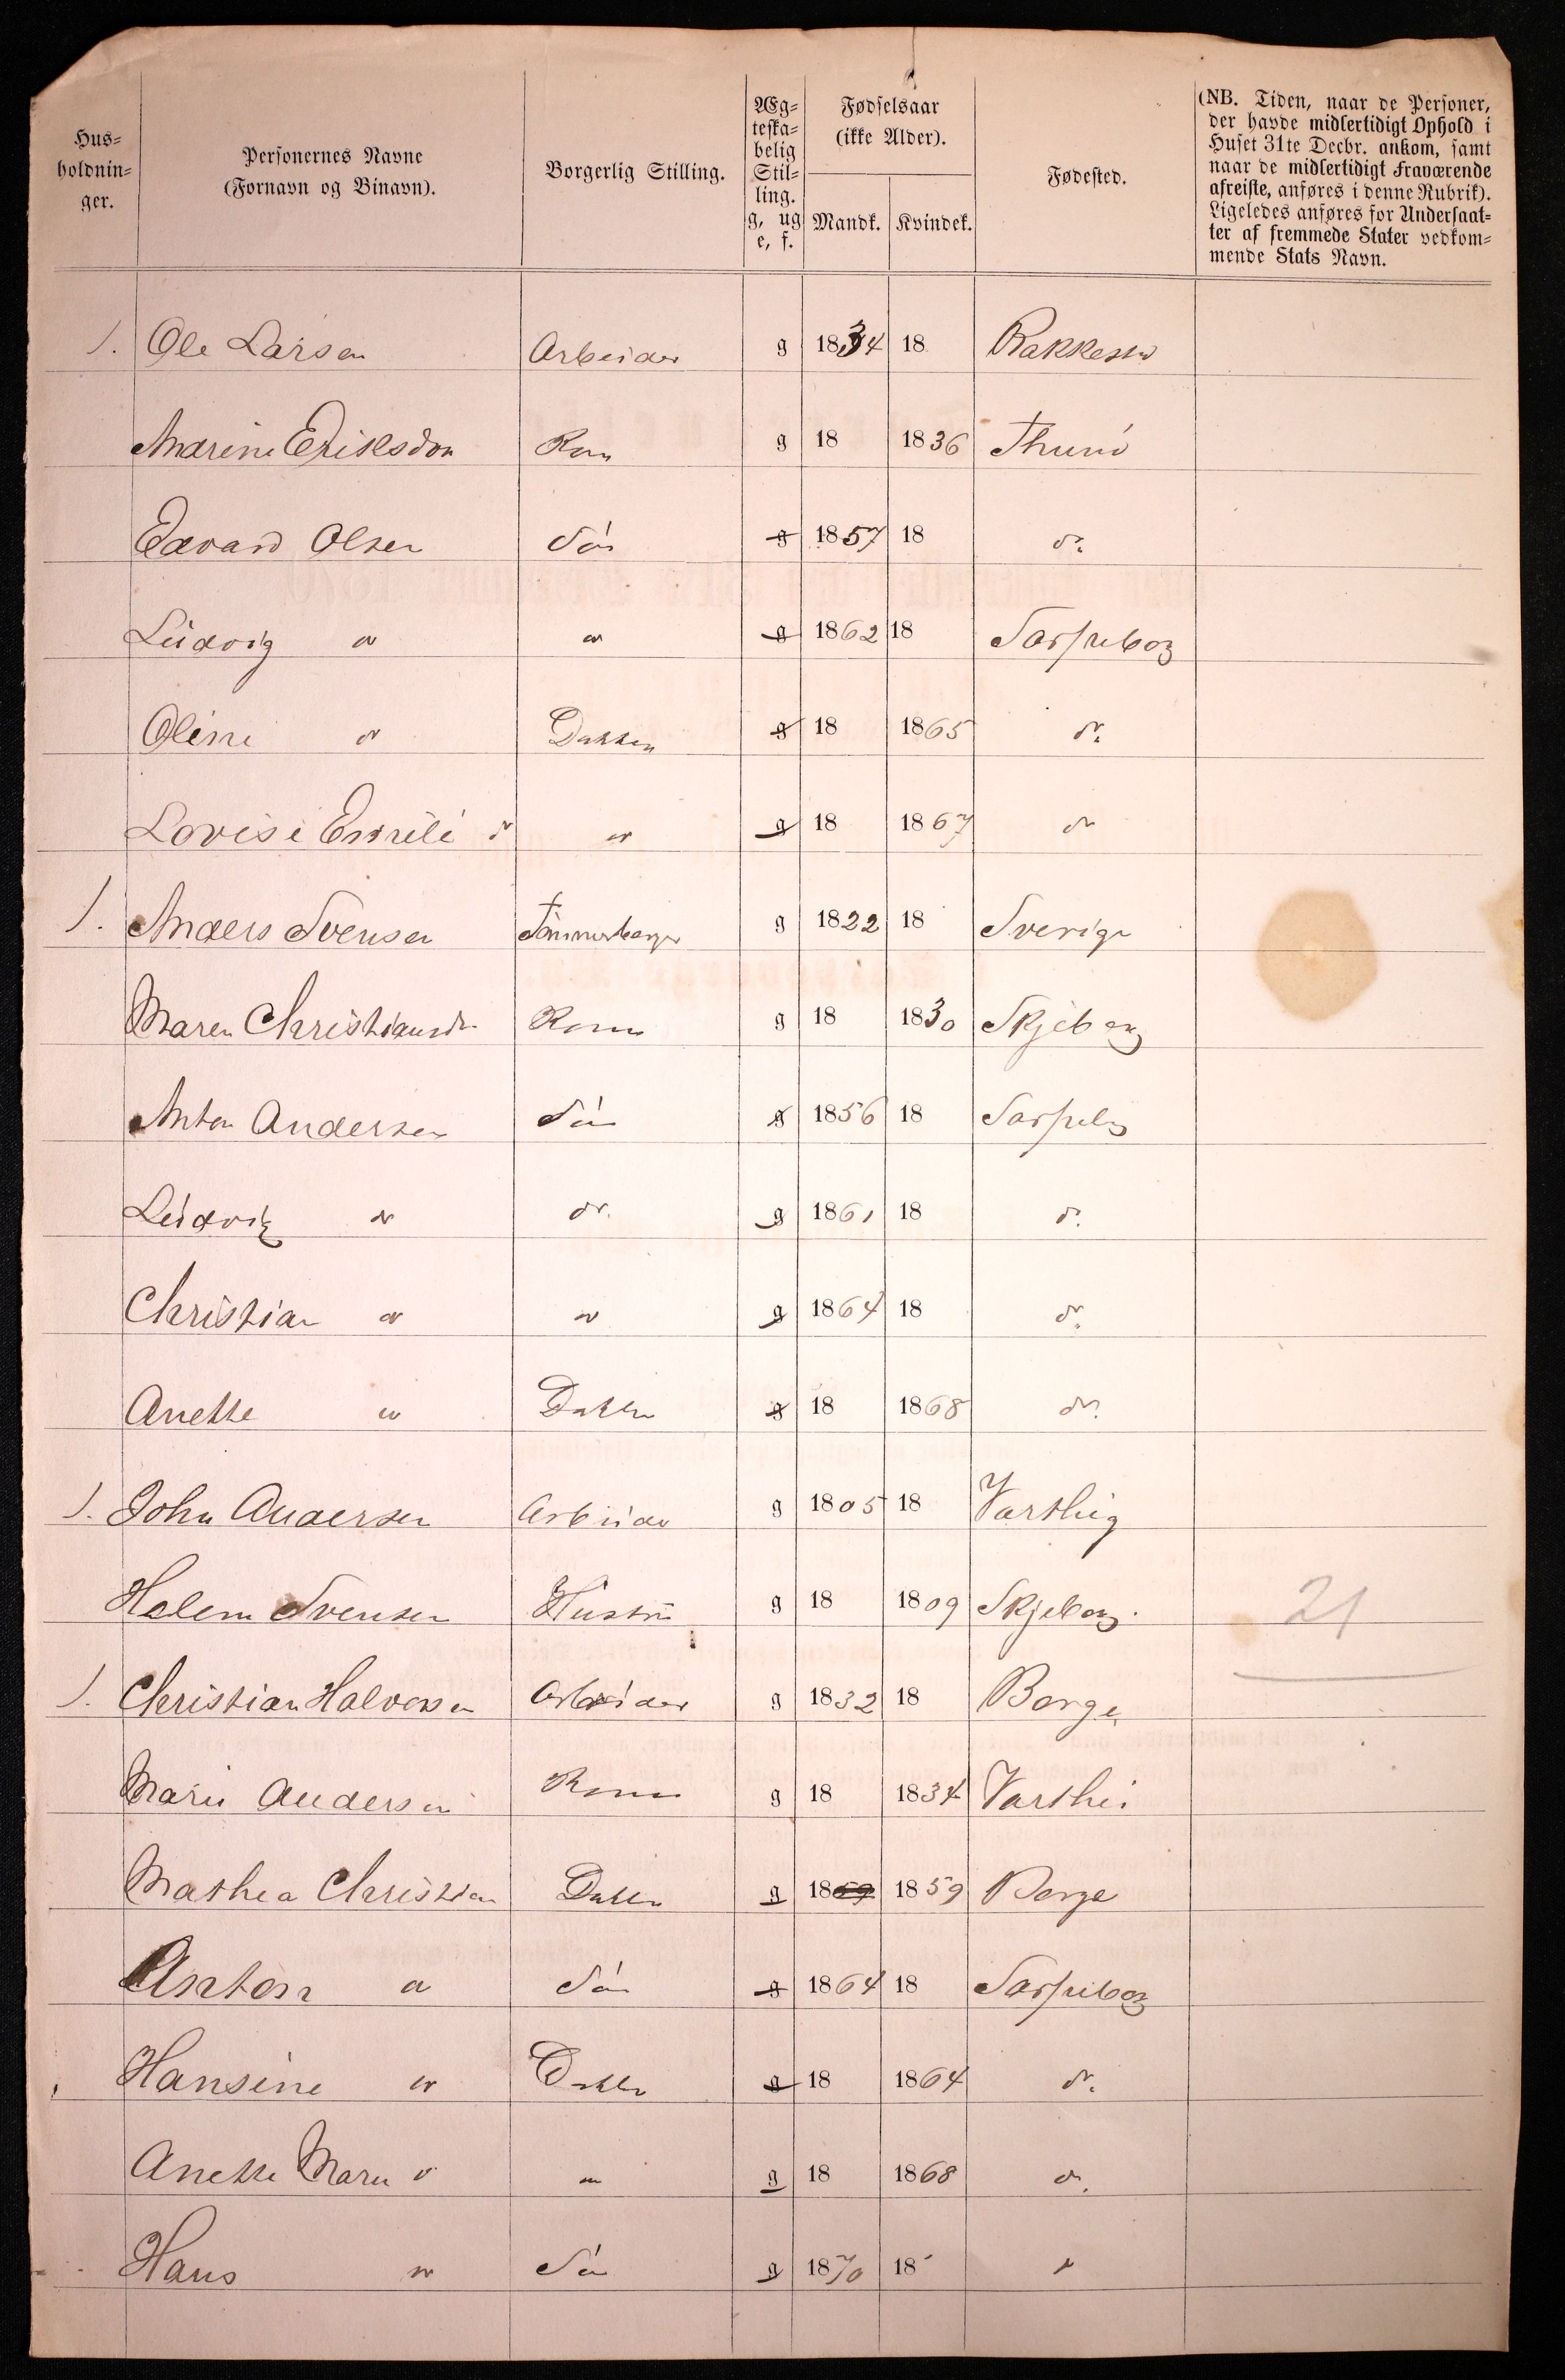 Hus-
holdnin-
ger.
Personernes Navne
(Fornavn og Binavn).
Borgerlig Stilling.
Æg-
teska-
belig
Stil-
ling.
g, ug
e, f.
Fødselsaar
(ikke Alder).
Mandk. Kvindek.
Fødested.
(NB. Tiden, naar de Personer,
der havde midlertidigt Ophold i
Huset 31te Decbr. ankom, samt
naar de midlertidigt Fraværende
afreiste, anføres i denne Rubrik).
Ligeledes anføres for Undersaat-
ter af fremmede Stater vedkom-
mende Stats Navn.
1. Ole Larsen Arbeider g 1834 18 Rakkestad
Marine Eriksdtr Kone g 18 1836 Thunø
Edvard Olsen Søn g 1857 18 do.
Ludvig do do g 1862 18 Sarpsborg
Oline do Datter g 18 1865 do.
Lovise Emilie do do g 18 1867 do
1. Anders Svensen Tømmerhugger g 1822 18 Sverige
Maren Christiansdr Kone g 18 1830 Skjeberg
Anton Andersen Søn g 1856 18 Sarpsbg
Ludvig do do. g 1861 18 do.
Christian do do g 1864 18 do.
Anette do Datter g 18 1868 do.
1. John Andersen Arbeider g 1805 18 Varteig
Helene Svensen Hustru g 18 1809 Skjeberg. 21
1. Christian Halvorsen Arbeider g 1832 18 Borge
Marie Andersen Kone g 18 1834
Mathea Christian Datter g 1859 1859 Borge
Anton do Søn g 1864 18 Sarpsborg
Hansine do Datter g 18 1864 do.
Anette Maren do do g 18 1868 do.
Hans do Søn g 1870 18 do